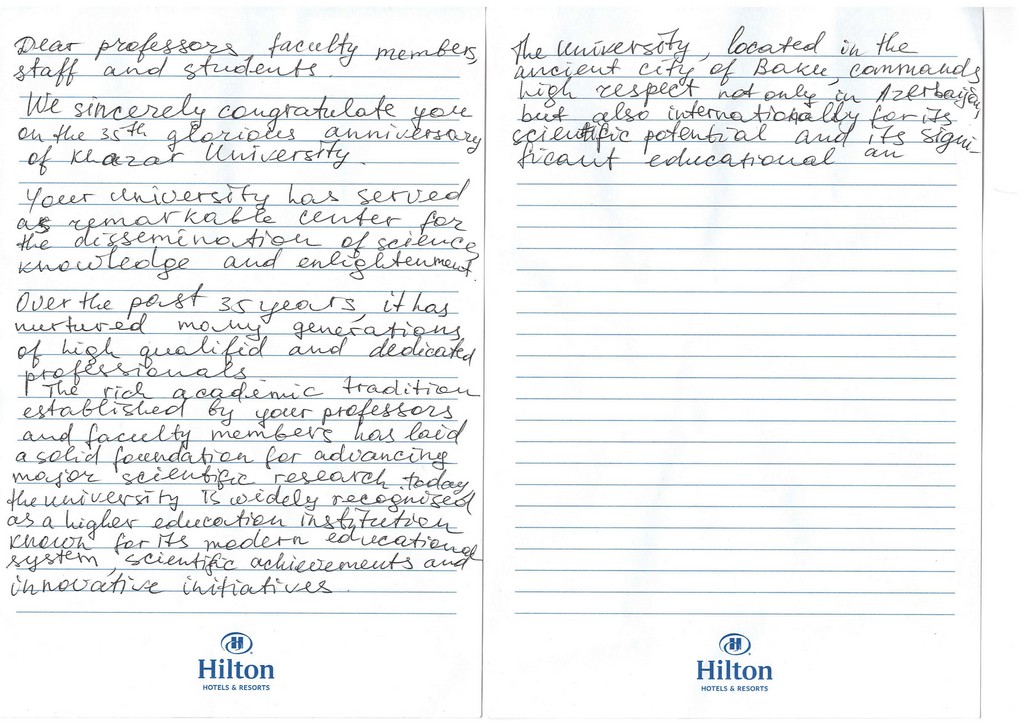 Dear professors, faculty members,
staff and students.
We sincerely congratulate you
on the 35th glorious anniversary
of Khazar University.
Your university has served
as remarkable center for
the dissemination of science,
knowledge and enlightenment.
Over the past 35 years, it has
nurtured many generations
of high qualifid and dedicated
professionals
The rich academic tradition
established by your professors
and faculty members has laid
a solid foundation for advancing
major scientific research. today,
the university is widely recognised
as a higher education institution
known for its modern educational
system, scientific achievements and
innovative initiatives.
H
Hilton
HOTELS & RESORTS
the University, located in the
ancient city of Baku, commands
high respect not only in Azerbaijan,
but also internationally for its
scientific potential and its signi-
ficant educational an
H
Hilton
HOTELS & RESORTS